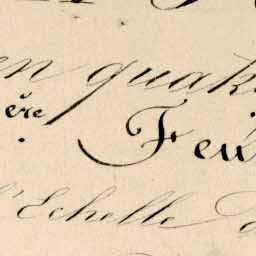 en qua
ère Feu
l'Echelle d